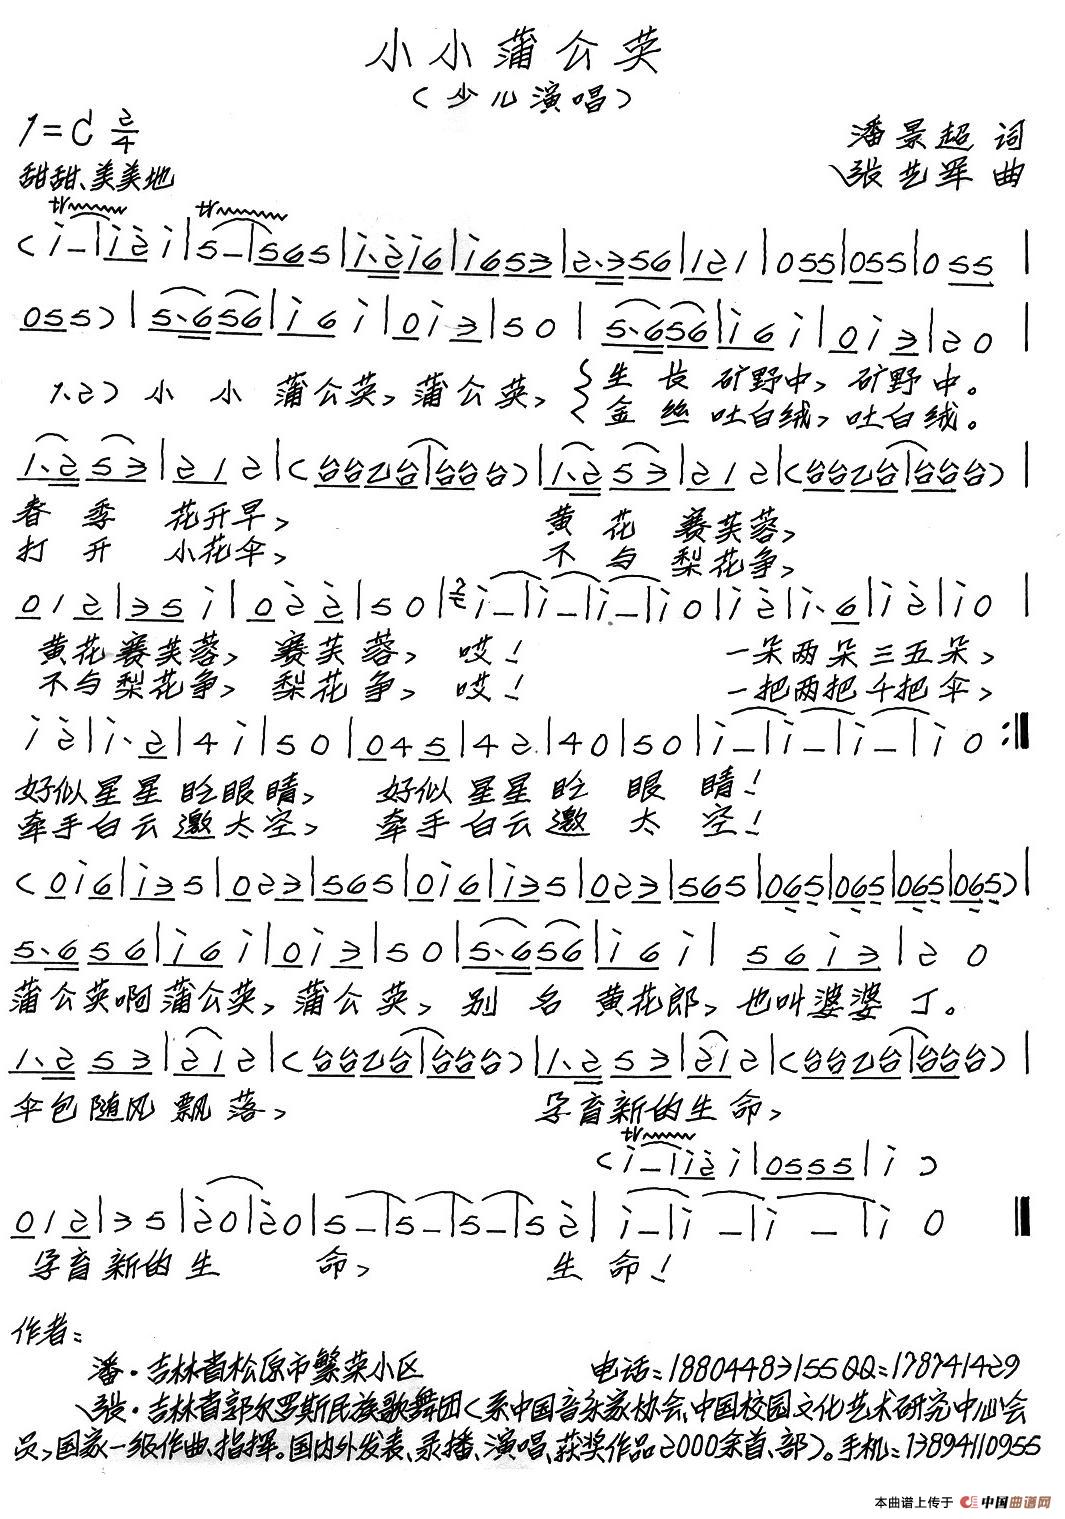 小小蒲公英
（少儿演唱）
1=C 2/4
潘景超 词
甜甜、美美地
张艺军 曲
tr tr
( i – | i 2 i | 5 – | 5 6 5 | i. 2 i 6 | i 6 5 3 | 2. 3 5 6 | 1 2 1 | 0 5 5 | 0 5 5 | 0 5 5 |
0 5 5 ) | 5. 6 5 6 | i 6 i | 0 i 3 | 5 0 | 5. 6 5 6 | i 6 i | 0 i 3 | 2 0 |
1.2) 小 小 蒲公英，蒲公英， 生 长 矿野中，矿野中。
金 丝 吐白绒，吐白绒。
1. 2 5 3 | 2 1 2 | ( 台台乙台 | 台台台 ) | 1. 2 5 3 | 2 1 2 | ( 台台乙台 | 台台台 ) |
春 季 花开早， 黄 花 赛芙蓉，
打 开 小花伞， 不 与 梨花争，
0 1 2 | 3 5 i | 0 2 2 | 5 0 | i – | i – | i – | i 0 | i 2 | i. 6 | i 2 | i 0 |
黄花赛芙蓉，赛芙蓉，哎！ 一朵两朵三五朵，
不与梨花争，梨花争，哎！ 一把两把千把伞，
i 2 | i. 2 | 4 i | 5 0 | 0 4 5 | 4 2 | 4 0 | 5 0 | i – | i – | i – | i 0 :‖
好似星星眨眼睛， 好似星星眨眼睛！
牵手白云邀太空， 牵手白云邀太空！
( 0 i 6 | i 3 5 | 0 2 3 | 5 6 5 | 0 i 6 | i 3 5 | 0 2 3 | 5 6 5 | 0 6 5 | 0 6 5 | 0 6 5 | 0 6 5 ) |
5. 6 5 6 | i 6 i | 0 i 3 | 5 0 | 5. 6 5 6 | i 6 i | 5 6 i 3 | 2 0
蒲公英啊蒲公英，蒲公英，别 名 黄花郎，也叫婆婆丁。
1. 2 5 3 | 2 1 2 | ( 台台乙台 | 台台台 ) | 1. 2 5 3 | 2 1 2 | ( 台台乙台 | 台台台 ) |
伞包随风飘落， 孕育新的生命，
tr
( i – | i 2 i | 0 5 5 5 | i )
0 1 2 | 3 5 | 2 0 | 2 0 | 5 – | 5 – | 5 – | 5 2 | i – | i – | i – | i 0 ‖
孕育新的生 命， 生 命！
作者：
潘·吉林省松原市繁荣小区 电话：18804483155 QQ：178741429
张·吉林省郭尔罗斯民族歌舞团（系中国音乐家协会、中国校园文化艺术研究中心会
员，国家一级作曲、指挥。国内外发表、录播、演唱、获奖作品2000余首、部）。手机：13894110955
本曲谱上传于 中国曲谱网